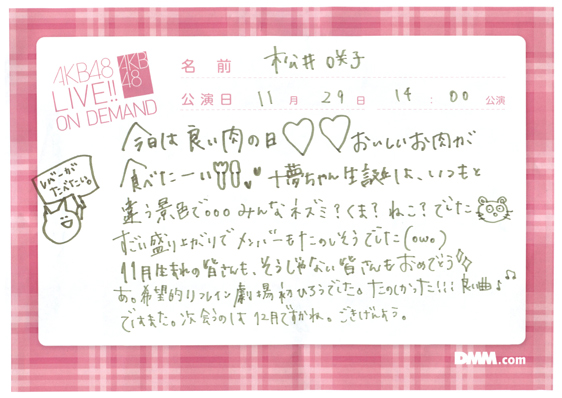 AKB48
LIVE!!
ON DEMAND
AKB
48
名前 松井 咲子
公演日 11月 29日 14:00 公演
今日は良い肉の日♡♡おいしいお肉が
食べたーい
レバーが
たべたい。
十夢ちゃん生誕は、いつもと
違う景色で○○○みんなネズミ?くま?ねこ?でした
すごい盛り上がりでメンバーもたのしそうでした(owo)
11月生まれの皆さんも、そうじゃない皆さんもおめでとう
あ。希望的リフレイン劇場初ひろうでした。たのしかった!!!良い曲♪♪
ではまた。次会うのは12月ですかね。ごきげんよう。
DMM.com